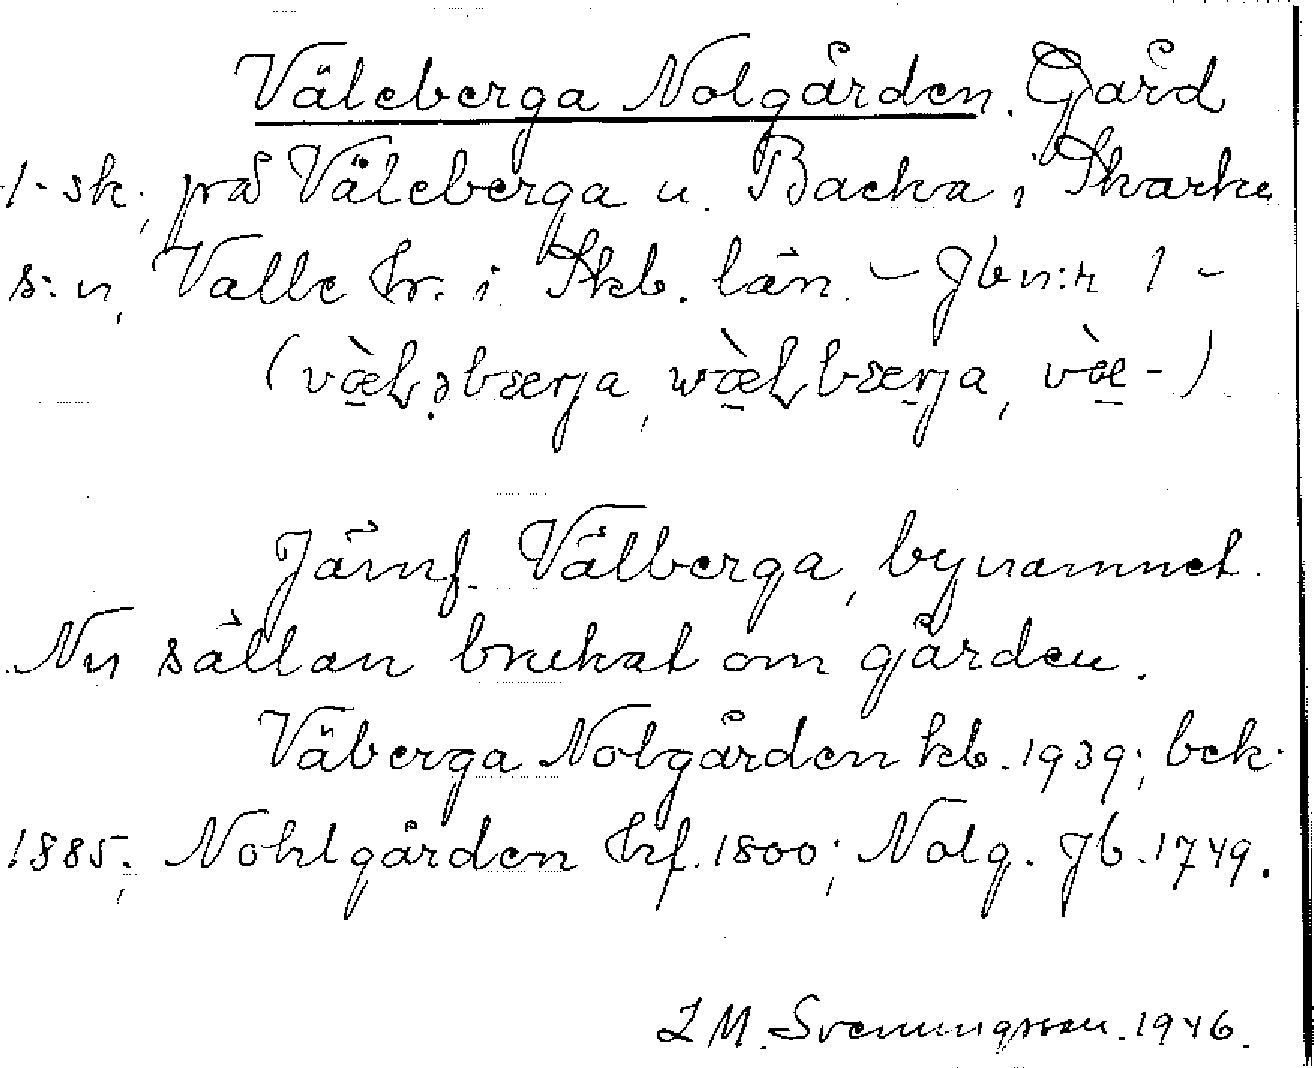 Väleberga Nolgården. Gård
1 sk. på Väleberga u. Backa i Skarke
s:n, Valle hr. i Skb. län. – Jb n:r 1 –
Jämf. Välberga, bynamnet.
Nu sällan brukat om gården.
Väberga Nolgården kb. 1939; bek.
1885; Nohlgården hf. 1800; Nolg. Jb. 1749.
L M. Svenningsson. 1946.